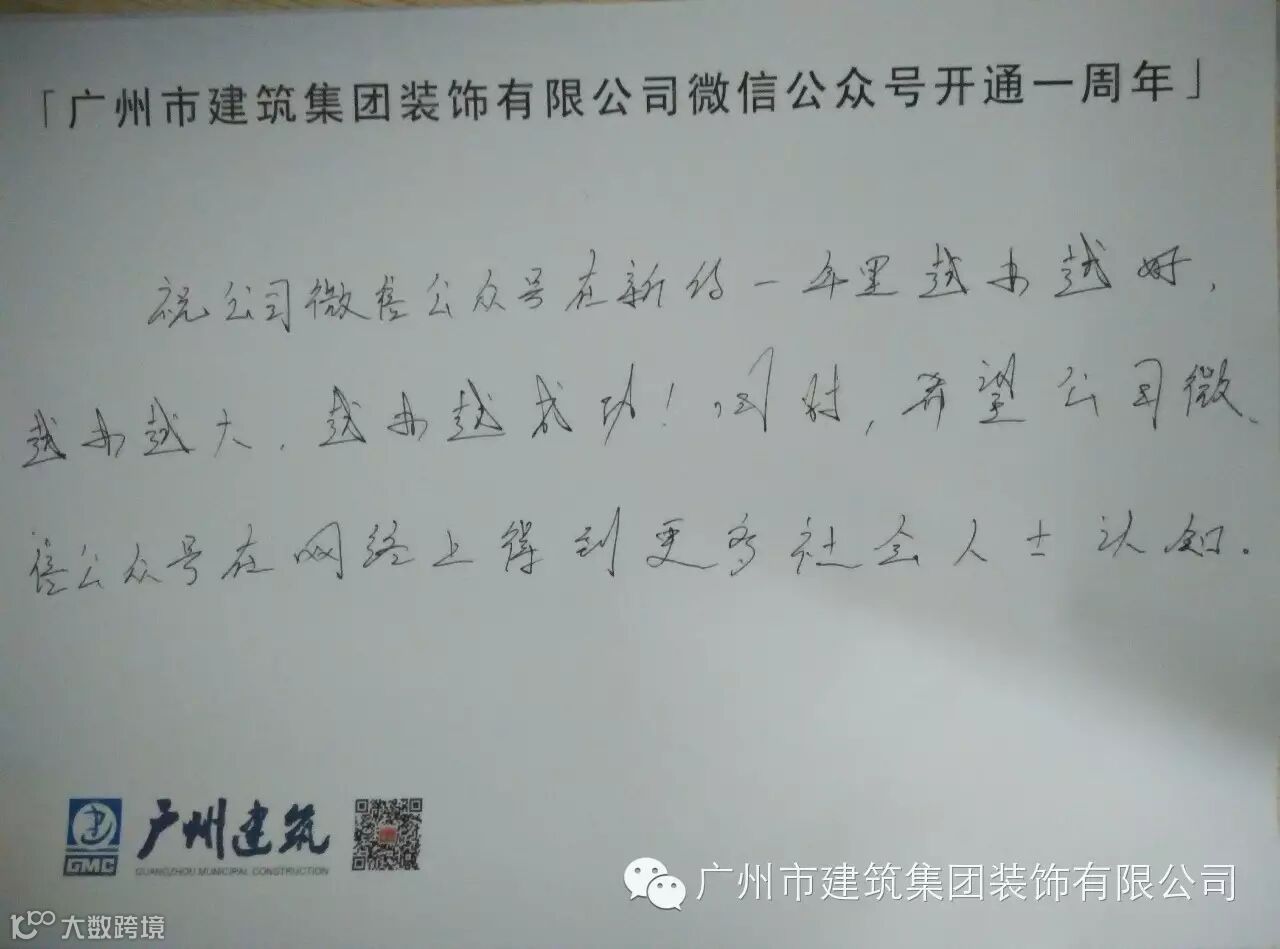 「广州市建筑集团装饰有限公司微信公众号开通一周年」
祝公司微信公众号在新的一年里越办越好，
越办越大，越办越成功！同时，希望公司微
信公众号在网络上得到更多社会人士认知。
GMC
广州建筑
GUANGZHOU MUNICIPAL CONSTRUCTION
广州市建筑集团装饰有限公司
大数跨境